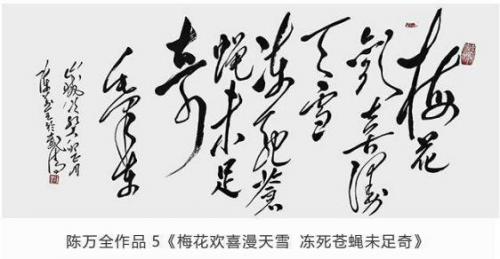 梅花
欢喜漫
天雪
冻死蒼
蝇未足
奇
陈万全作品 5《梅花欢喜漫天雪 冻死苍蝇未足奇》